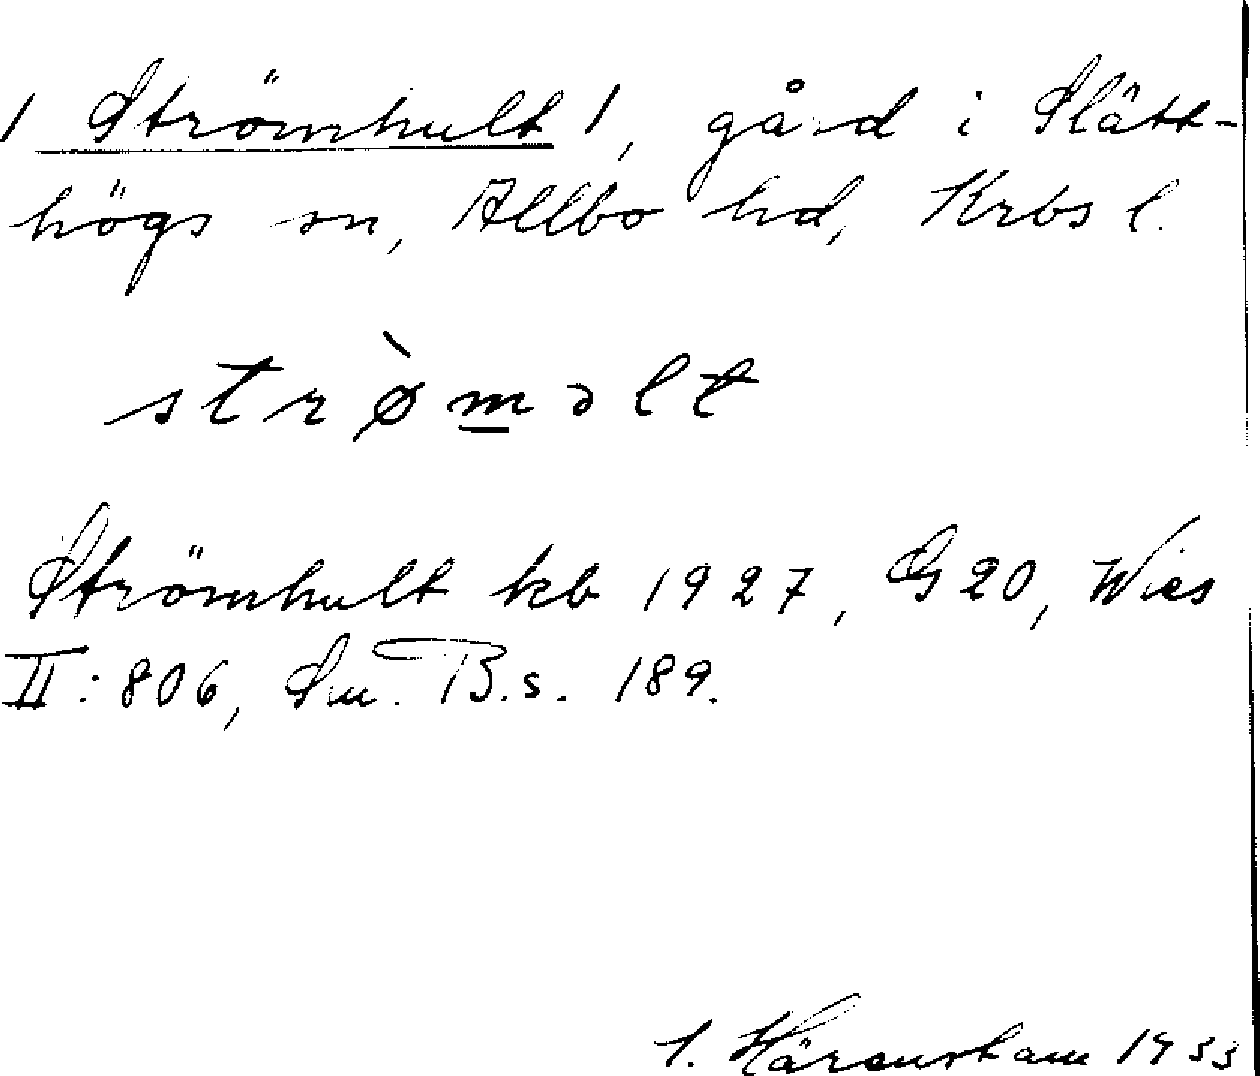 / Strömhult /, gård i Slätt-
högs sn, Allbo hd, Krbs l.
strø̀m̲əlt
Strömhult kb 1927, G 20, Wies
II: 806, Sm. B. s. 189.
1933